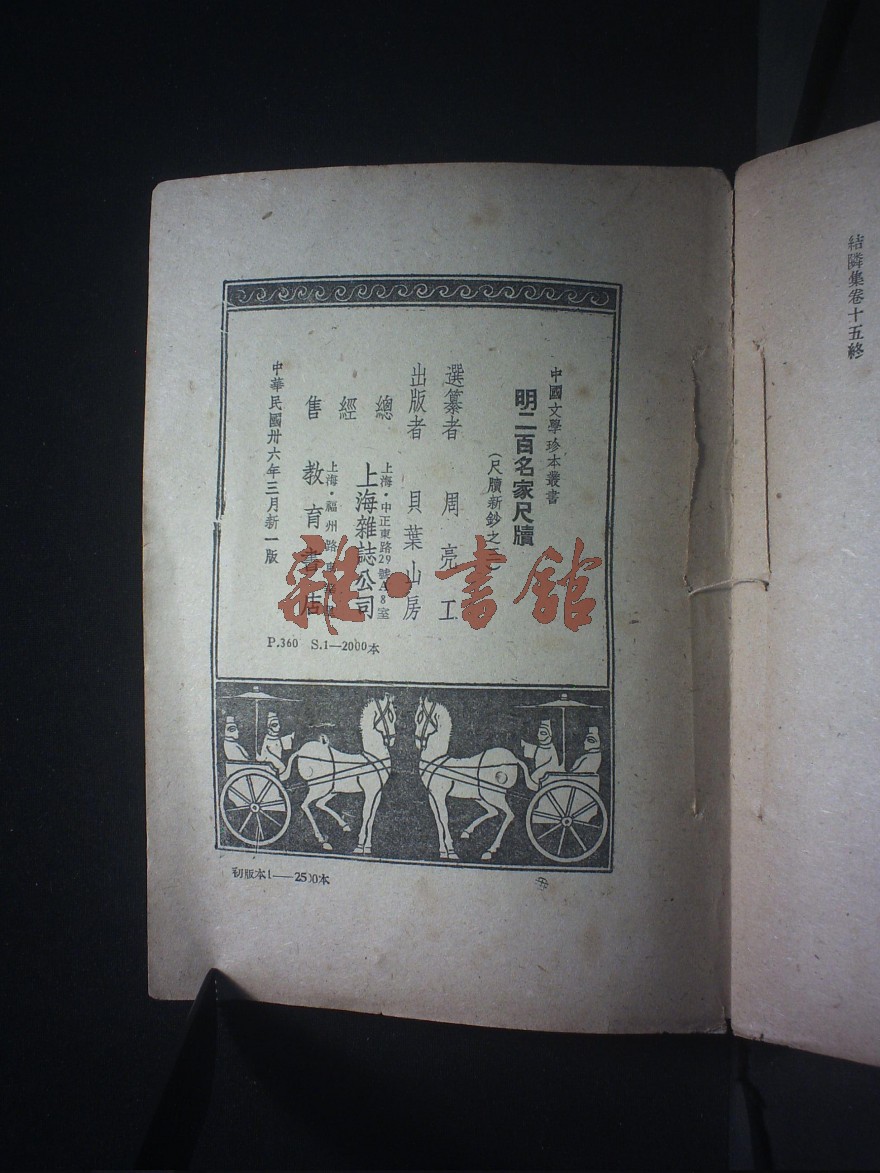 結隣集卷十五終
中國文學珍本叢書
明二百名家尺牘
(尺牘新鈔之
選纂者 周亮工
出版者 貝葉山房
總經售
上海·中正東路29號A8室
上海雜誌公司
上海·福州路
教育書店
中華民國卅六年三月新一版
P.360 S.1—2000本
初版本1——2500本
雜·書館